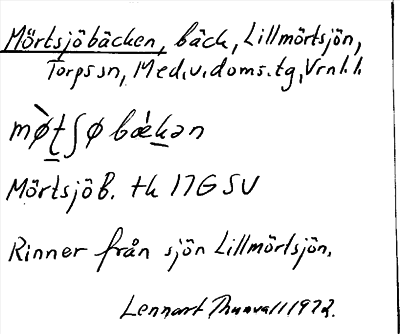 Mörtsjöbäcken, bäck, Lillmörtsjön,
Torps sn, Med.v.doms.tg, Vrnl.l.
mø̀ʈʃø bǽkən
Mörtsjöb. tk 17G SV
Rinner från sjön Lillmörtsjön.
Lennart Thunvall 1972.